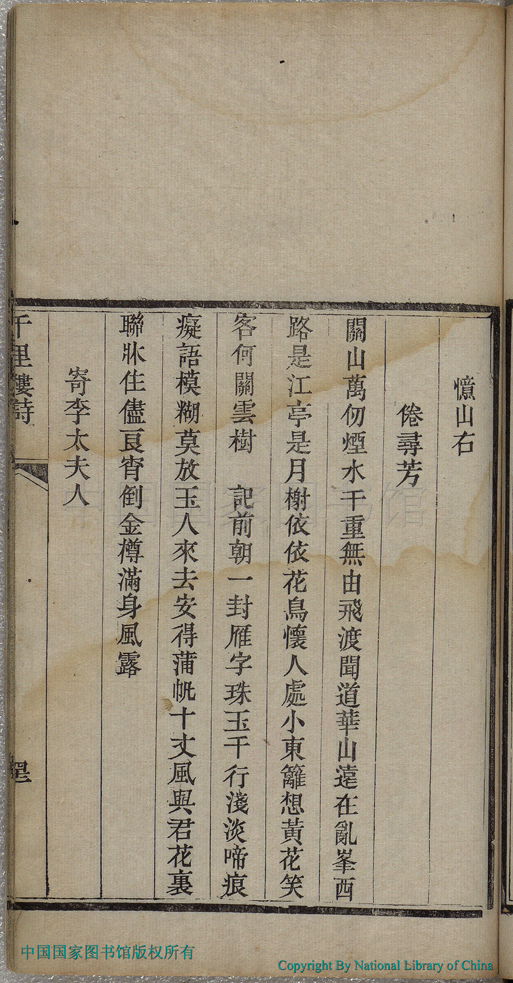 憶山右
倦尋芳
關山萬仞煙水千重無由飛渡聞道華山遠在亂峯西
路是江亭是月榭依依花鳥懷人處小東籬想黃花笑
客何關雲樹　記前朝一封雁字珠玉千行淺淡啼痕
癡語模糊莫放玉人來去安得蒲帆十丈風與君花裏
聯牀住儘良宵倒金樽滿身風露
寄李太夫人
千里樓詩
中国国家图书馆版权所有
Copyright By National Library of China